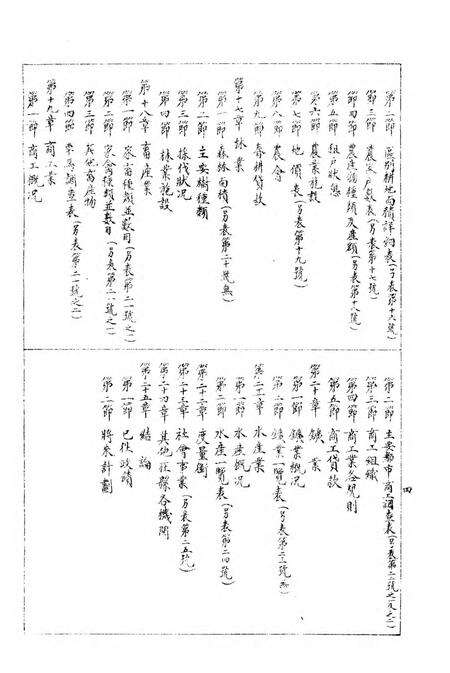 第二節 區別耕地面積詳細表(另表第十六號)
第三節 農家戶數表(另表第十七號)
第四節 農產物種類及產額(另表第十八號)
第五節 佃戶狀態
第六節 農業設施
第七節 地價表(另表第十九號)
第八節 農會
第九節 春耕貸款
第十七章 林業
第一節 森林面積(另表第二十號無)
第二節 主要樹種類
第三節 採伐狀況
第四節 林業設施
第十八章 畜產業
第一節 家畜種類並數目(另表第二一號之一)
第二節 家禽種類並數目(另表第二一號之一)
第三節 其他畜產物
第四節 調查表(另表第二一號之二)
第十九章 商工業
第一節 商工概況
第二節 主要都市商工調查表(另表第二二號之一及之二)
第三節 商工組織
第四節 商工業各規則
第五節 商工貸款
第二十章 鑛業
第一節 鑛業概況
第二節 鑛業一覽表(另表第二三號無)
第二一章 水產業
第一節 水產概況
第二節 水產一覽表(另表第二四號)
第二十二章 度量衡
第二十三章 社會事業(另表第二五號)
第二十四章 其他駐縣各機關
第二十五章 結論
第一節 已往政績
第二節 將來計劃
四